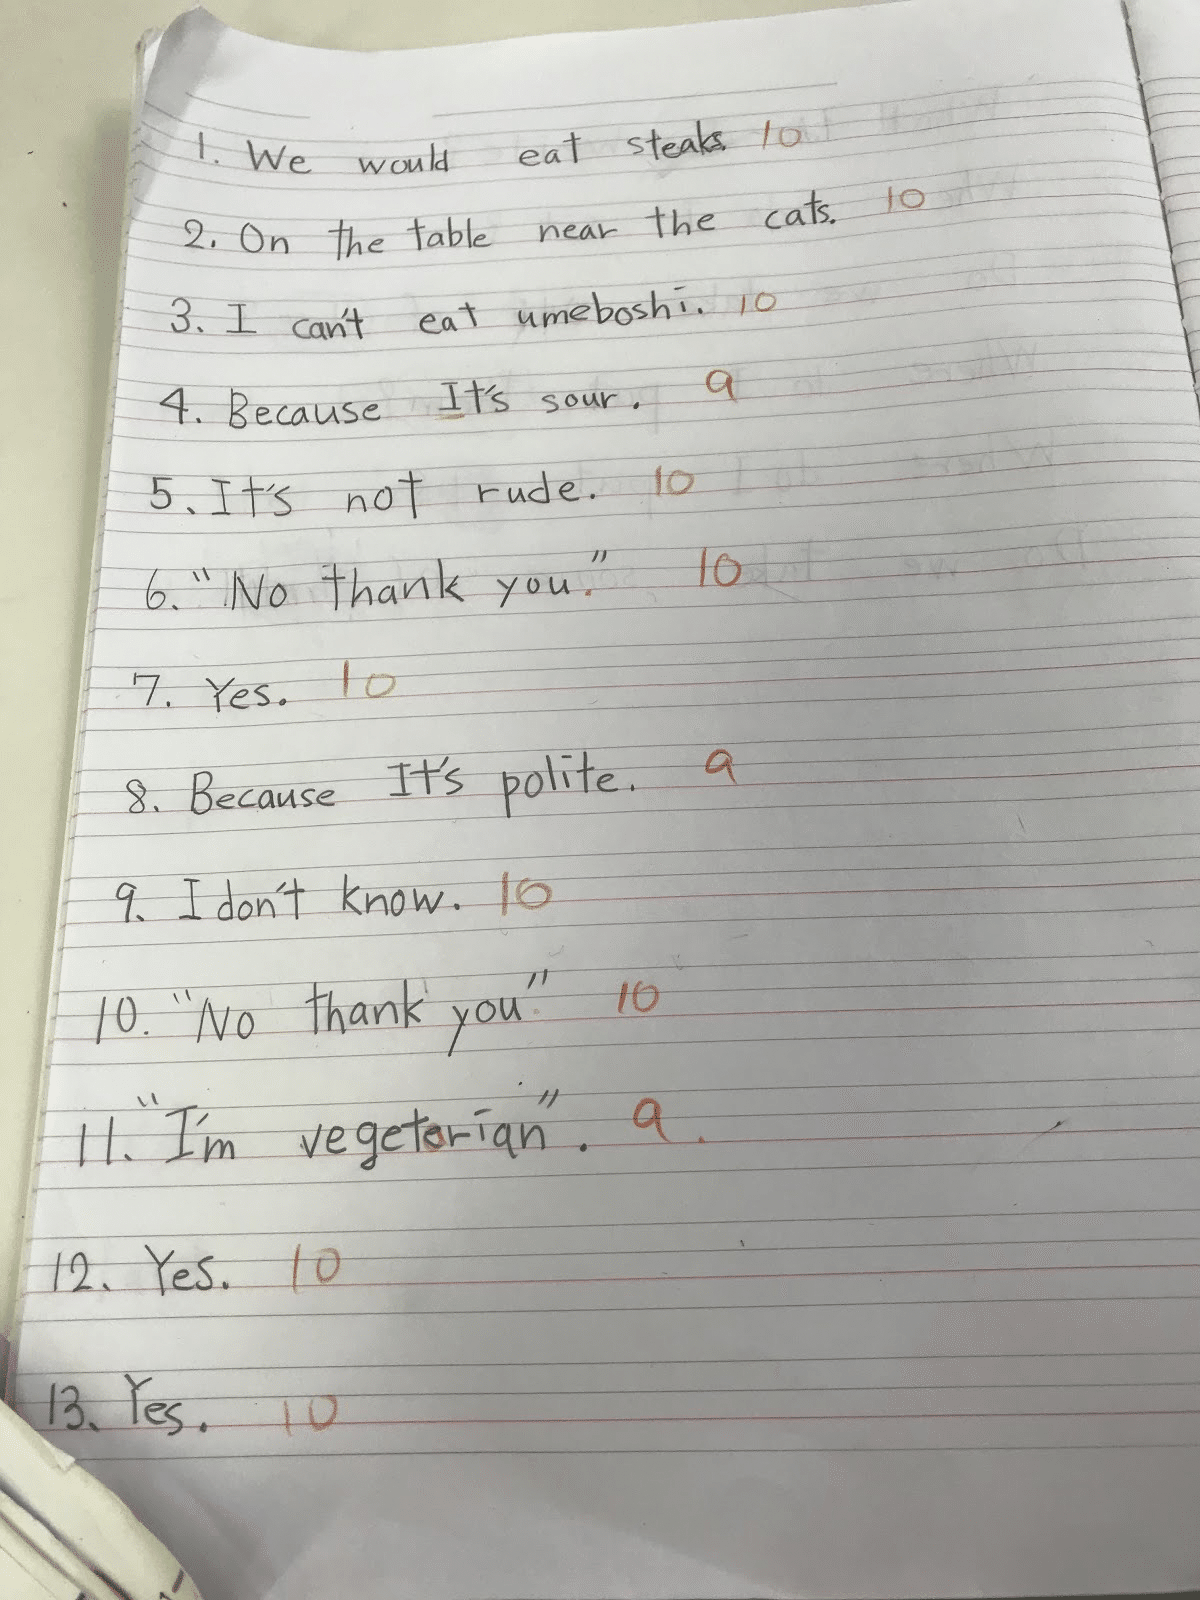 1. We would eat steaks. 10
2. On the table near the cats. 10
3. I can't eat umeboshi. 10
4. Because It's sour. 9
5. It's not rude. 10
6. "No thank you." 10
7. Yes. 10
8. Because It's polite. 9
9. I don't know. 10
10. "No thank you." 10
11. "I'm vegetarian". 9.
12. Yes. 10
13. Yes. 10